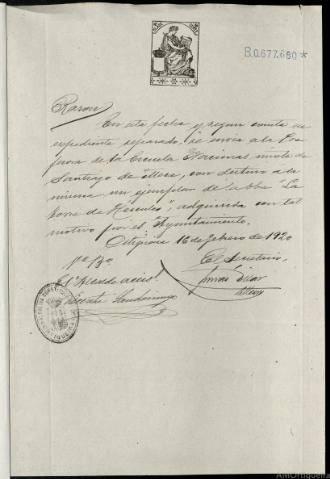 B.0.677.680 *
Razon
En esta fecha y segun consta en
expediente separado, se envia a la
de la Escuela Normal mixta de
Santiago de con destino a la
misma un ejemplar de la obra "La
Torre de Hercules", adquirida con tal
motivo por el Ayuntamiento.
Ortigueira 16 de Febrero de 1920
Vº Bº El Secretario,
El Alcalde
Vicente
AMOrtigueira